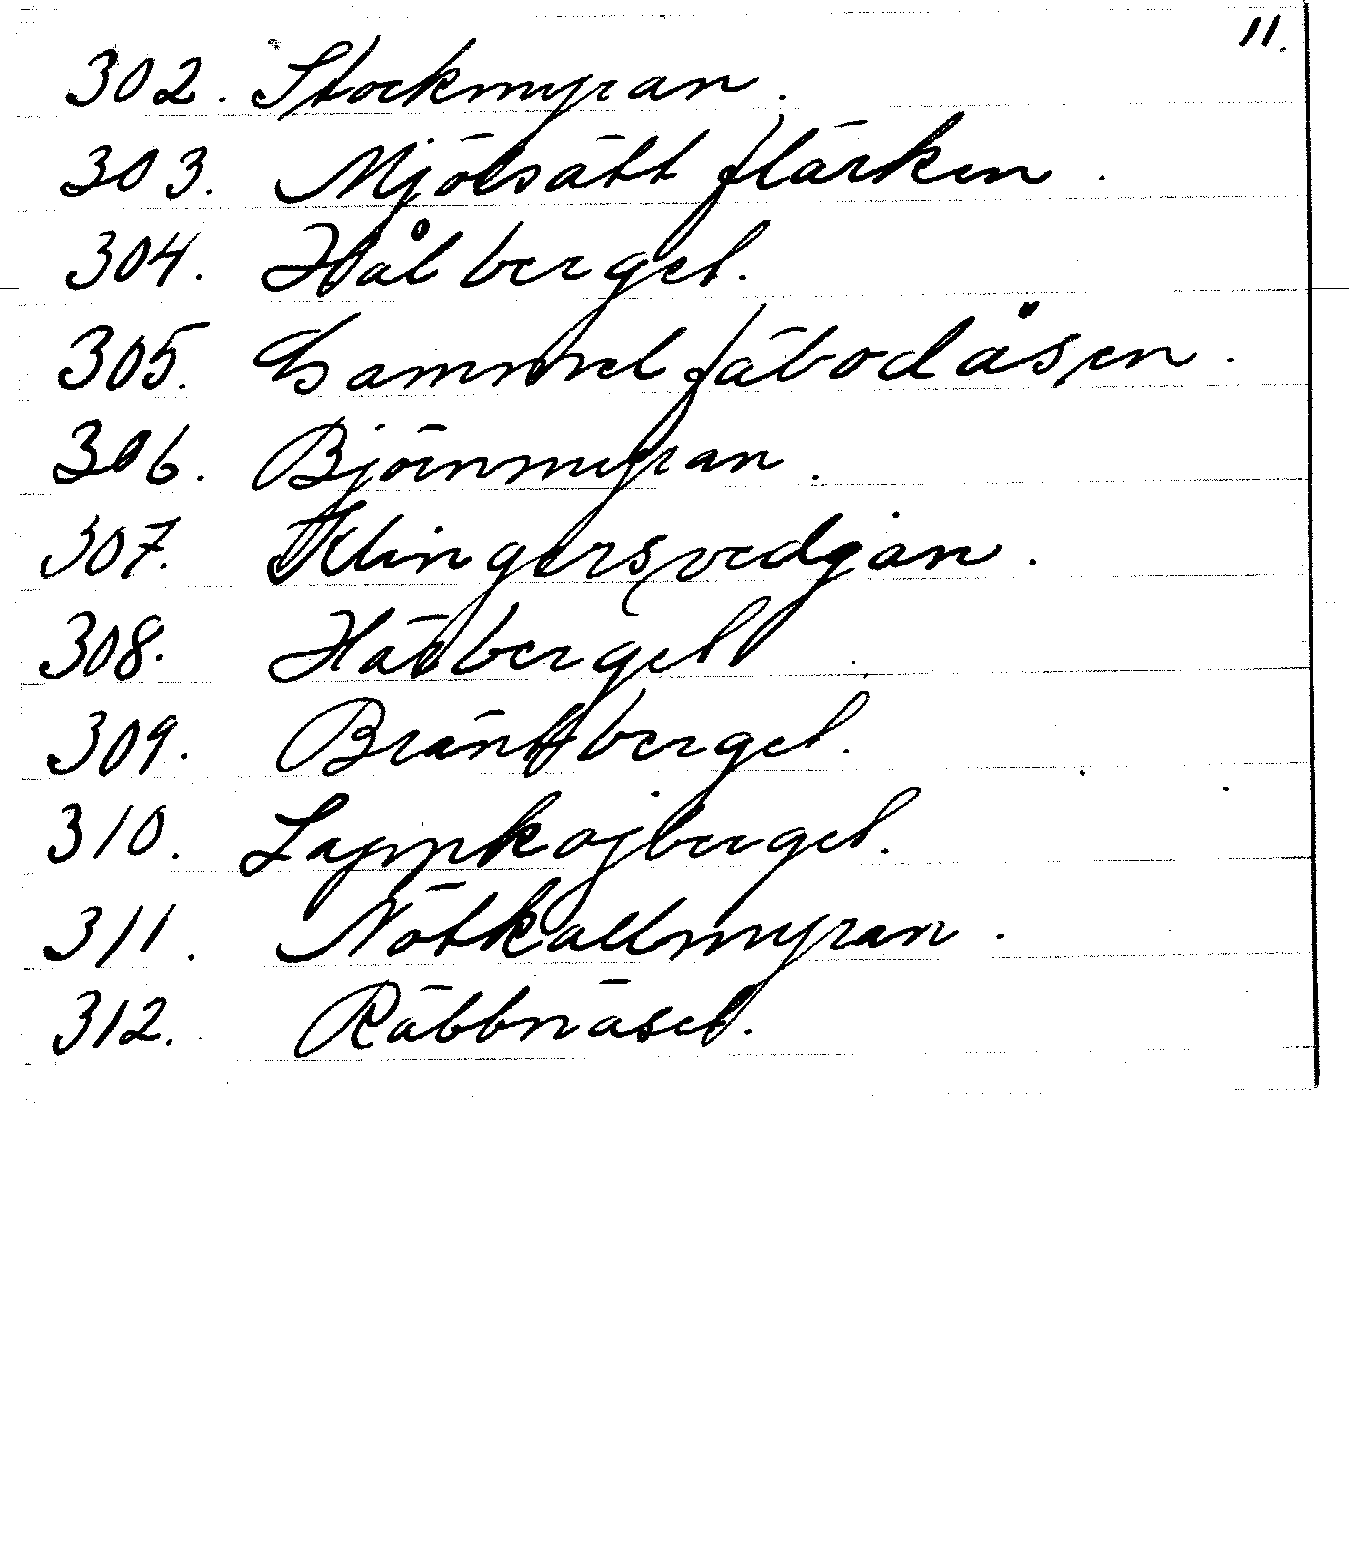 11.
302. Stockmyran.
303. Mjölsätt flärken.
304. Hålberget.
305. Gammel fäbodåsen.
306. Björnmyran.
307. Klingersvedjan.
308. Häbberget
309. Bräntberget.
310. Lappkojberget.
311. Nötkallmyran.
312. Räbbnäset.